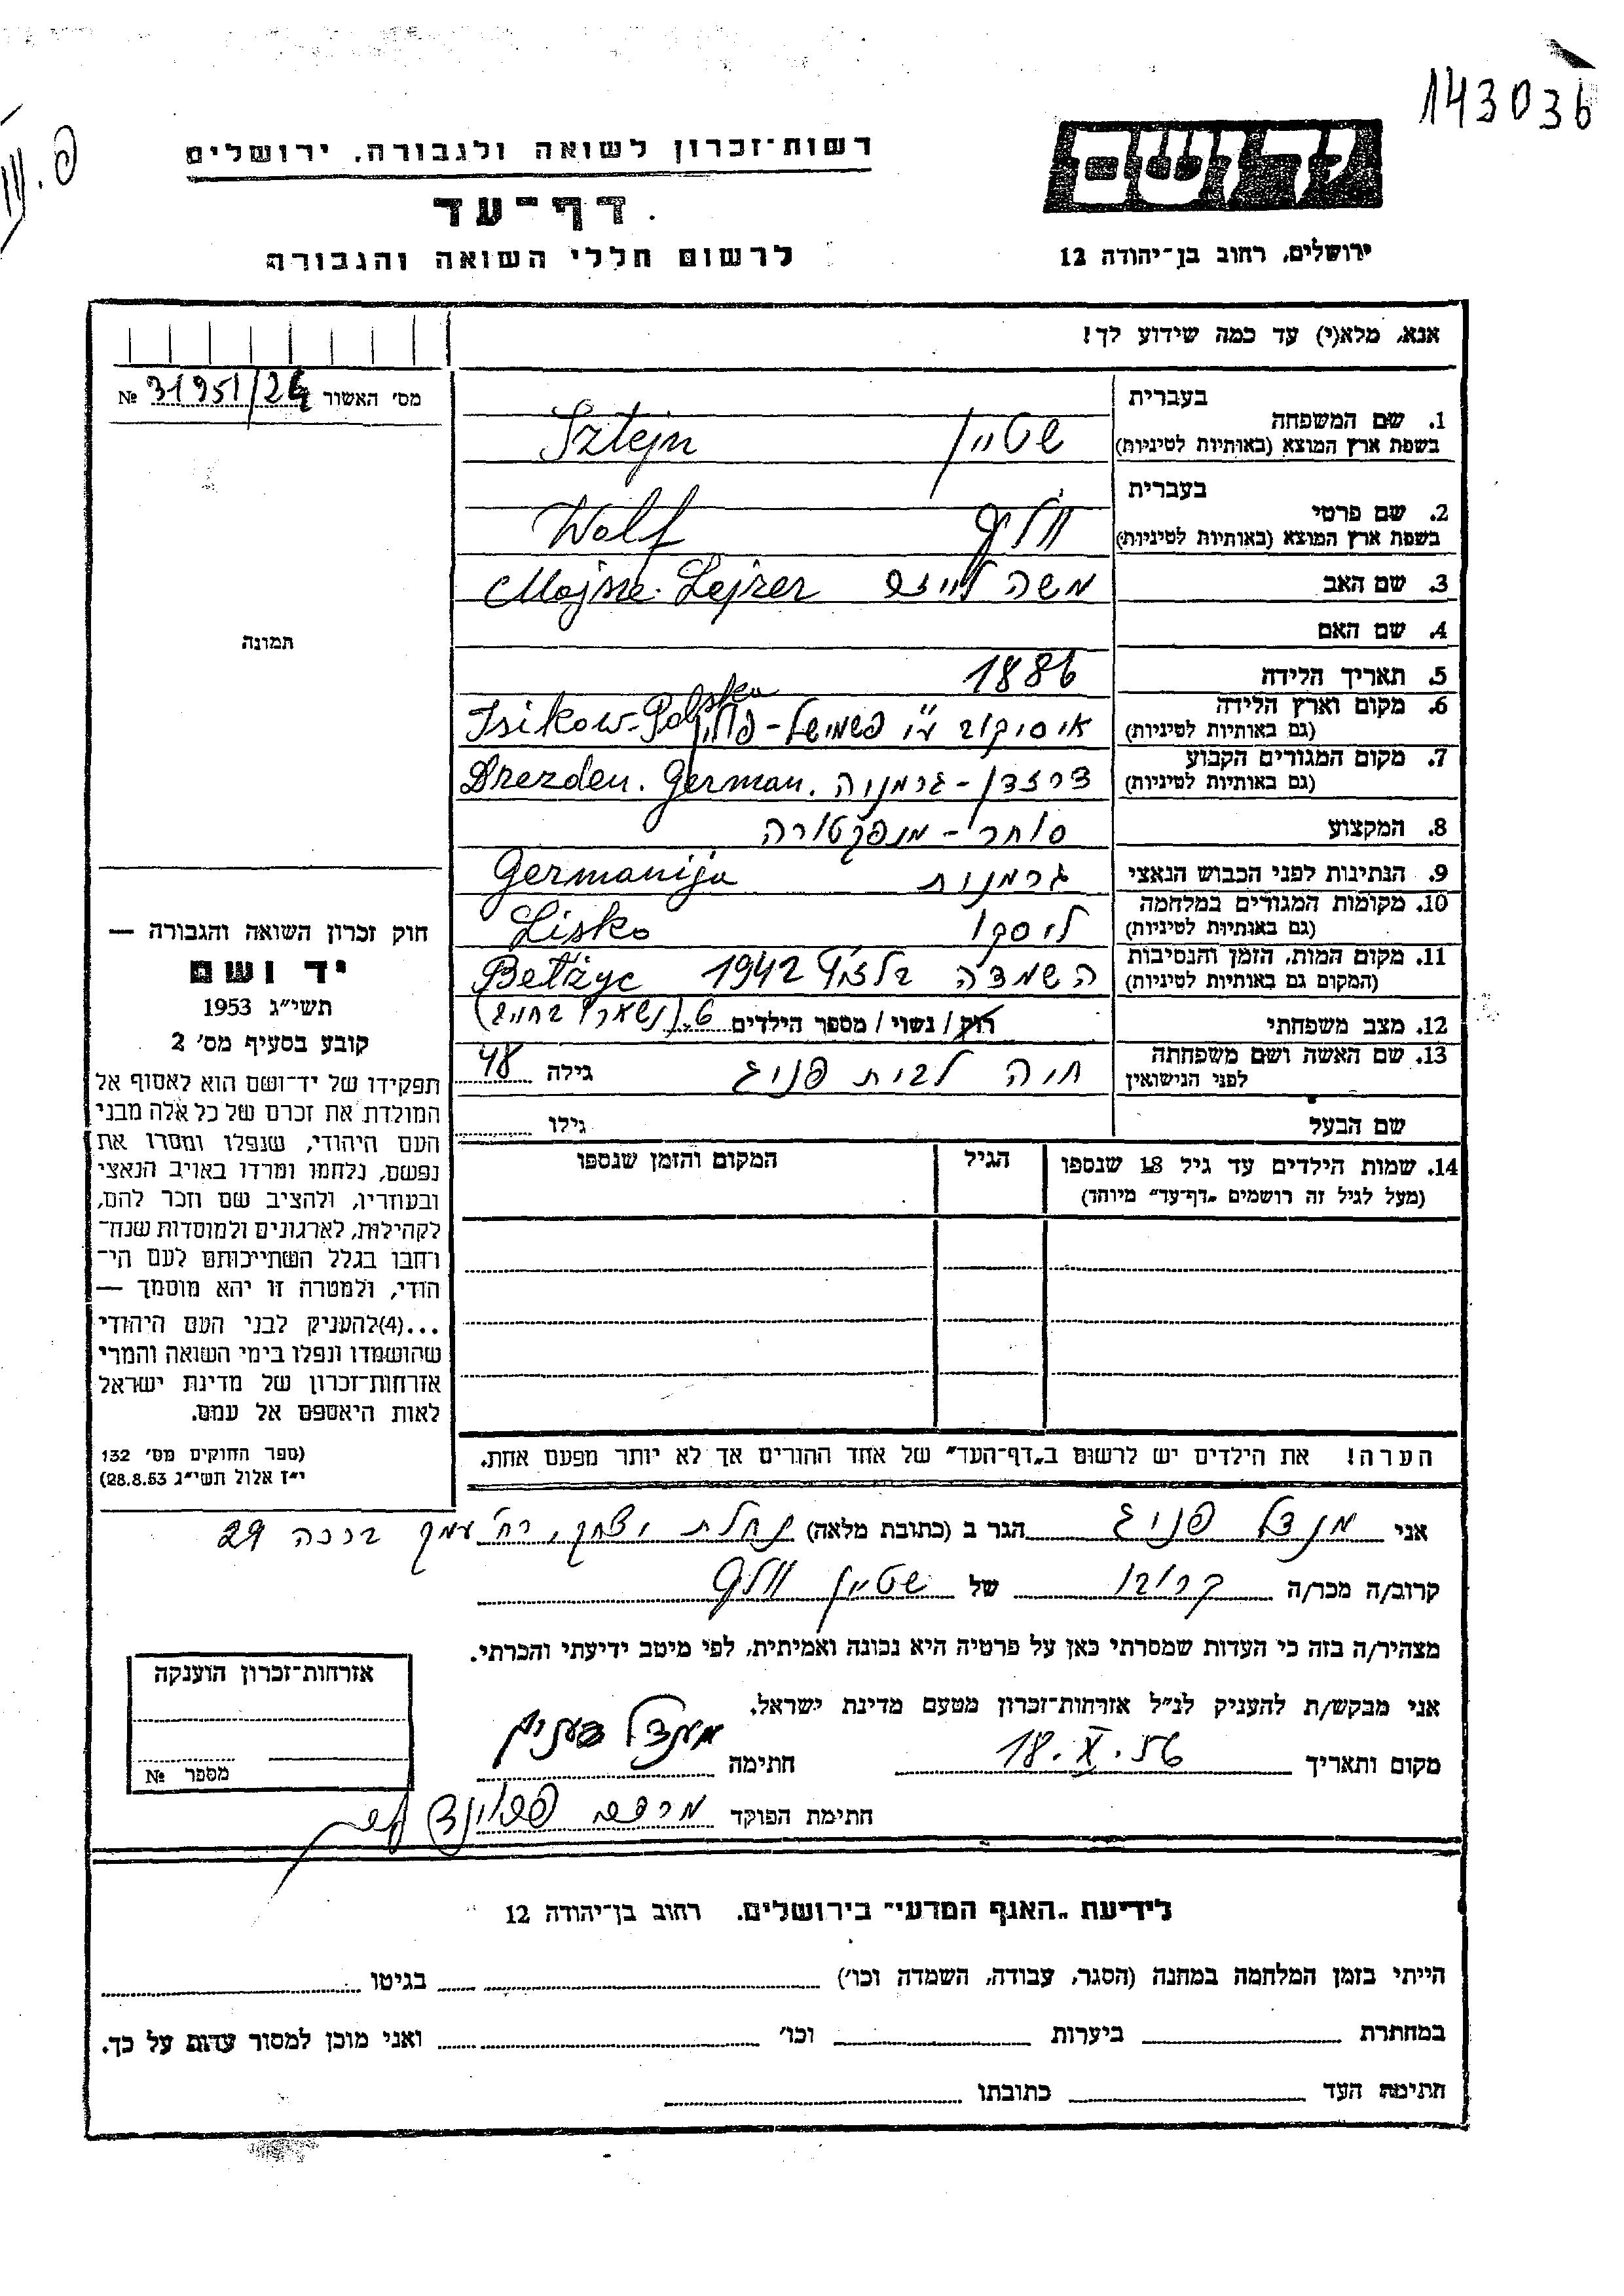 143036
יד ושם
ירושלים, רחוב בן־יהודה 12
רשות־זכרון לשואה ולגבורה, ירושלים
דף־עד
לרשום חללי השואה והגבורה
אנא, מלא(י) עד כמה שידוע לך!
מס׳ האשור № 31951/24
בעברית
1. שם המשפחה שטיין Sztejn
בשפת ארץ המוצא (באותיות לטיניות)
בעברית
2. שם פרטי וולף Wolf
בשפת ארץ המוצא (באותיות לטיניות)
3. שם האב משה לייזר Mojsze. Lejzer
4. שם האם
5. תאריך הלידה 1886
6. מקום וארץ הלידה איסיקוב ע״י פשמישל - פולין Isikow-Polska
(גם באותיות לטיניות)
7. מקום המגורים הקבוע דרזדן - גרמניה. Drezden. German.
(גם באותיות לטיניות)
8. המקצוע סוחר - מנפקטורה
9. הנתינות לפני הכבוש הנאצי גרמנית Germanija
10. מקומות המגורים במלחמה ליסקו Lisko
(גם באותיות לטיניות)
11. מקום המות, הזמן והנסיבות השמדה בלז׳ץ 1942 Bełżyc
(המקום גם באותיות לטיניות)
12. מצב משפחתי רוק / נשוי / מספר הילדים 6. (נשארו בחיים)
13. שם האשה ושם משפחתה חיה לבית פניג גילה 48
לפני הנישואין
שם הבעל גילו
14. שמות הילדים עד גיל 18 שנספו הגיל המקום והזמן שנספו
(מעל לגיל זה רושמים „דף־עד״ מיוחד)
הערה! את הילדים יש לרשום ב„דף־העד״ של אחד ההורים אך לא יותר מפעם אחת.
תמונה
חוק זכרון השואה והגבורה —
יד ושם
תשי״ג 1953
קובע בסעיף מס׳ 2
תפקידו של יד־ושם הוא לאסוף אל
המולדת את זכרם של כל אלה מבני
העם היהודי, שנפלו ומסרו את
נפשם, נלחמו ומרדו באויב הנאצי
ובעוזריו, ולהציב שם וזכר להם,
לקהילות, לארגונים ולמוסדות שנח־
רחבו בגלל השתייכותם לעם הי־
הודי, ולמטרה זו יהא מוסמך —
...(4)להעניק לבני העם היהודי
שהושמדו ונפלו בימי השואה והמרי
אזרחות־זכרון של מדינת ישראל
לאות היאספם אל עמם.
(ספר החוקים מס׳ 132
י״ז אלול תשי״ג 28.8.53)
אני מנדל פניג הגר ב (כתובת מלאה) נחלת יצחק, רח׳ עמק ברכה 29
קרוב/ה מכר/ה קרובו של שטיין וולף
מצהיר/ה בזה כי העדות שמסרתי כאן על פרטיה היא נכונה ואמיתית, לפי מיטב ידיעתי והכרתי.
אני מבקש/ת להעניק לנ״ל אזרחות־זכרון מטעם מדינת ישראל.
מקום ותאריך 18.X.56 חתימה מענדל
חתימת הפוקד
אזרחות־זכרון הוענקה
מספר №
לידיעת „האגף המדעי״ בירושלים. רחוב בן־יהודה 12
הייתי בזמן המלחמה במחנה (הסגר, עבודה, השמדה וכו׳) בגיטו
במחתרת ביערות וכו׳ ואני מוכן למסור עדות על כך.
חתימת העד כתובתו